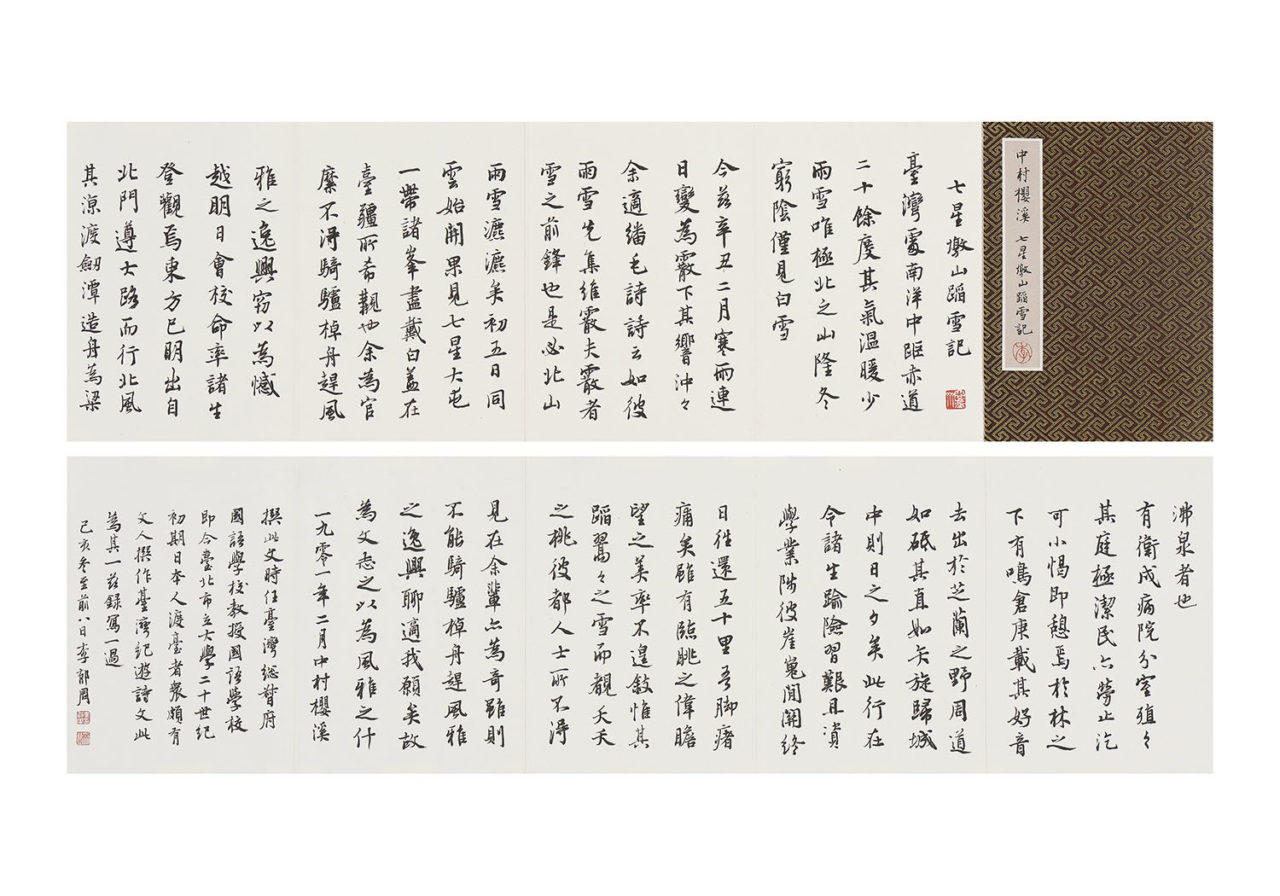 中村櫻溪 七星墩山蹈雪記
七星墩山蹈雪記
臺灣處南洋中距赤道
二十餘度其氣溫暖少
雨雪唯極北之山隆冬
窮陰僅見白雪
今茲辛丑二月寒雨連
日變為霰下其響沖々
余適繙毛詩詩云如彼
雨雪先集維霰夫霰者
雪之前鋒也是必北山
雨雪瀌瀌矣初五日同
雲始開果見七星大屯
一帶諸峯盡戴白蓋在
臺疆所希覯也余為官
縻不得騎驢棹舟趕風
雅之逸興竊以為憾
越明日會校命率諸生
登觀焉東方已明出自
北門遵士路而行北風
其涼渡劍潭造舟為梁
沸泉者也
有衛戍病院分室殖々
其庭極潔民亦勞止汔
可小愒即憩焉於林之
下有鳴倉庚載其好音
去出於芝蘭之野周道
如砥其直如矢旋歸城
中則日之夕矣此行在
令諸生踰險習艱且資
學業陟彼崔嵬間關終
日往還五十里吾脚瘏
痡矣雖有臨眺之偉瞻
望之美率不遑敘惟其
蹈翯々之雪而觀夭夭
之桃彼都人士所不得
見在余輩亦為奇雖則
不能騎驢棹舟趕風雅
之逸興聊適我願矣故
為文志之以為風雅之什
一九零一年二月中村櫻溪
撰此文時任臺灣總督府
國語學校教授國語學校
即今臺北市立大學二十世紀
初期日本人渡臺者衆頗有
文人撰作臺灣紀遊詩文此
為其一茲錄寫一過
己亥冬至前八日李郁周